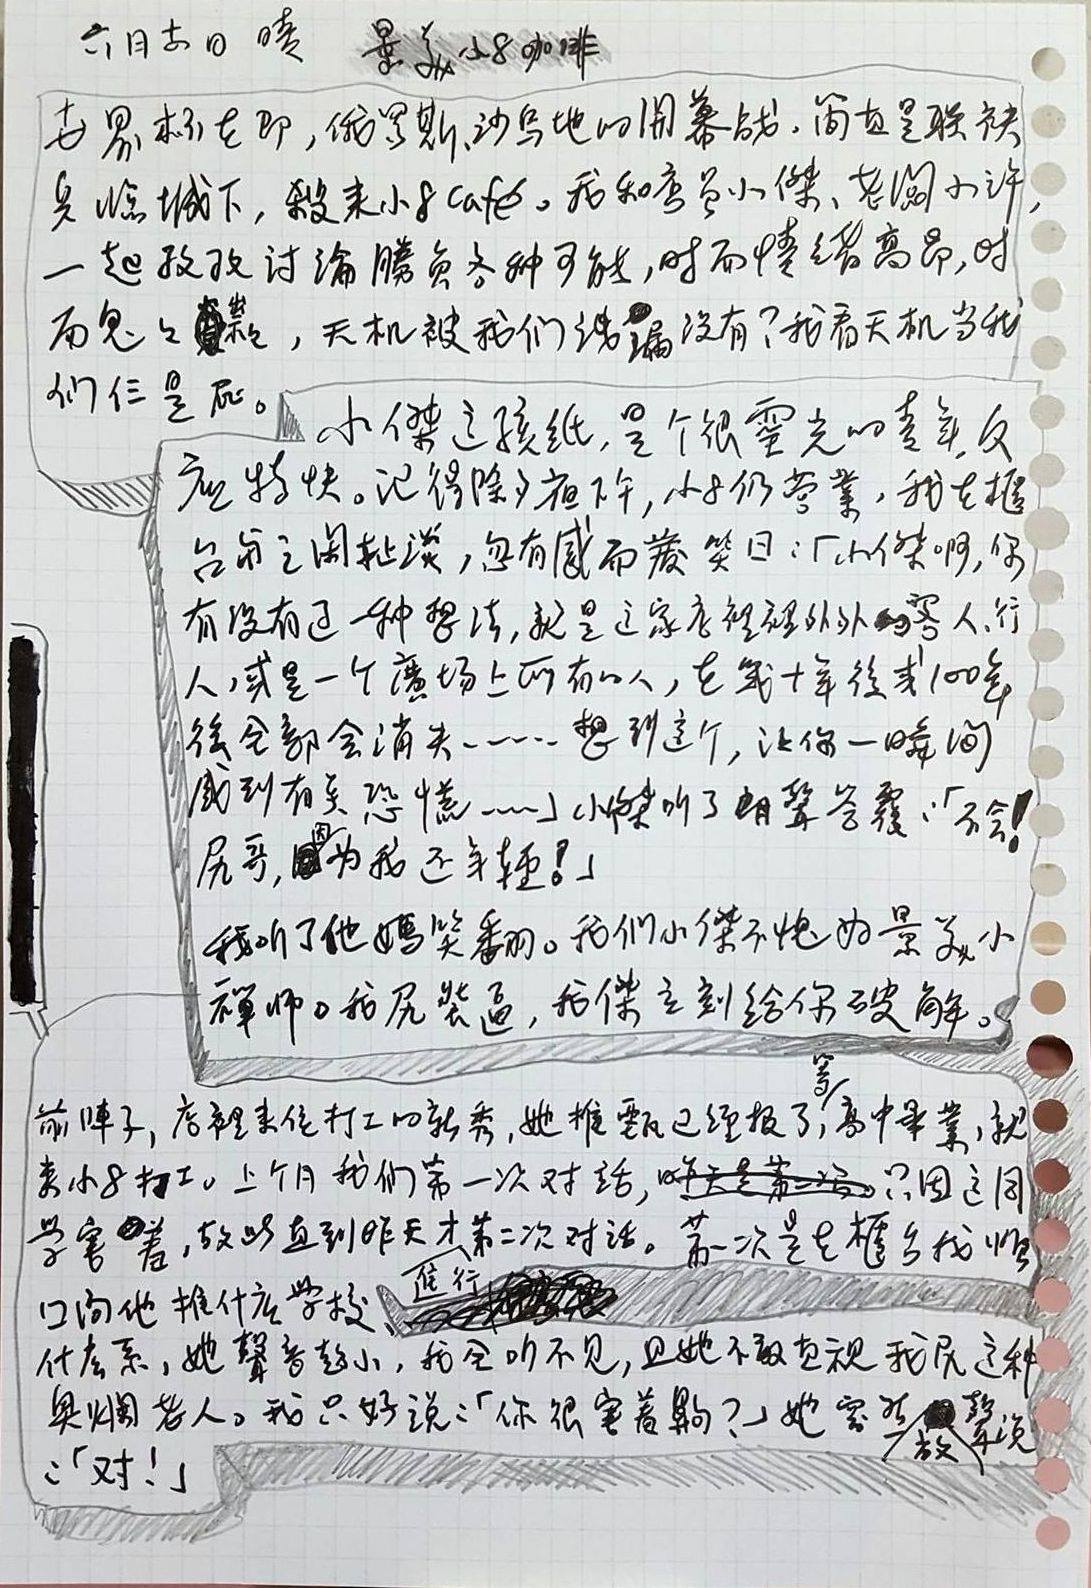 六月十四日 晴 景美小8咖啡
世界杯在即，俄罗斯、沙乌地的開幕战，简直是联袂
兵临城下，殺来小8 café。我和店员小傑、老闆小許，
一起孜孜討論勝負各种可能，时而情绪高昂，时
而鬼鬼祟祟，天机被我们洩漏没有？我看天机当我
们仨是屁。
小傑这孩纸，是个很靈光的青年，反
应特快。记得除夕夜下午，小8仍营業，我在櫃
台前之閒扯淡，忽有感而發笑曰：「小傑啊，你
有没有过一种想法，就是这家店裡裡外外的客人、行
人，或是一个廣场上所有的人，在幾十年後或100年
後全部会消失……想到这个，让你一瞬间
感到有点恐慌……」小傑听了朗聲答覆：「不会！
尻哥，因为我还年轻！」
我听了他媽笑翻。我们小傑不愧为景美小
禅师。我尻装逼，我傑立刻给你破解。
前陣子，店裡来位打工的新秀，她推甄已经报了，等高中畢業，就
来小8打工。上个月我们第一次对话，昨天是第二次。只因这同
学害羞，故此直到昨天才第二次对话。第一次是在櫃台我順
口问她推什麼学校、進行
什麼系，她聲音超小，我全听不见，且她不敢直视我尻这种
臭爛老人。我只好说：「你很害羞齁？」她突然放聲说
：「对！」